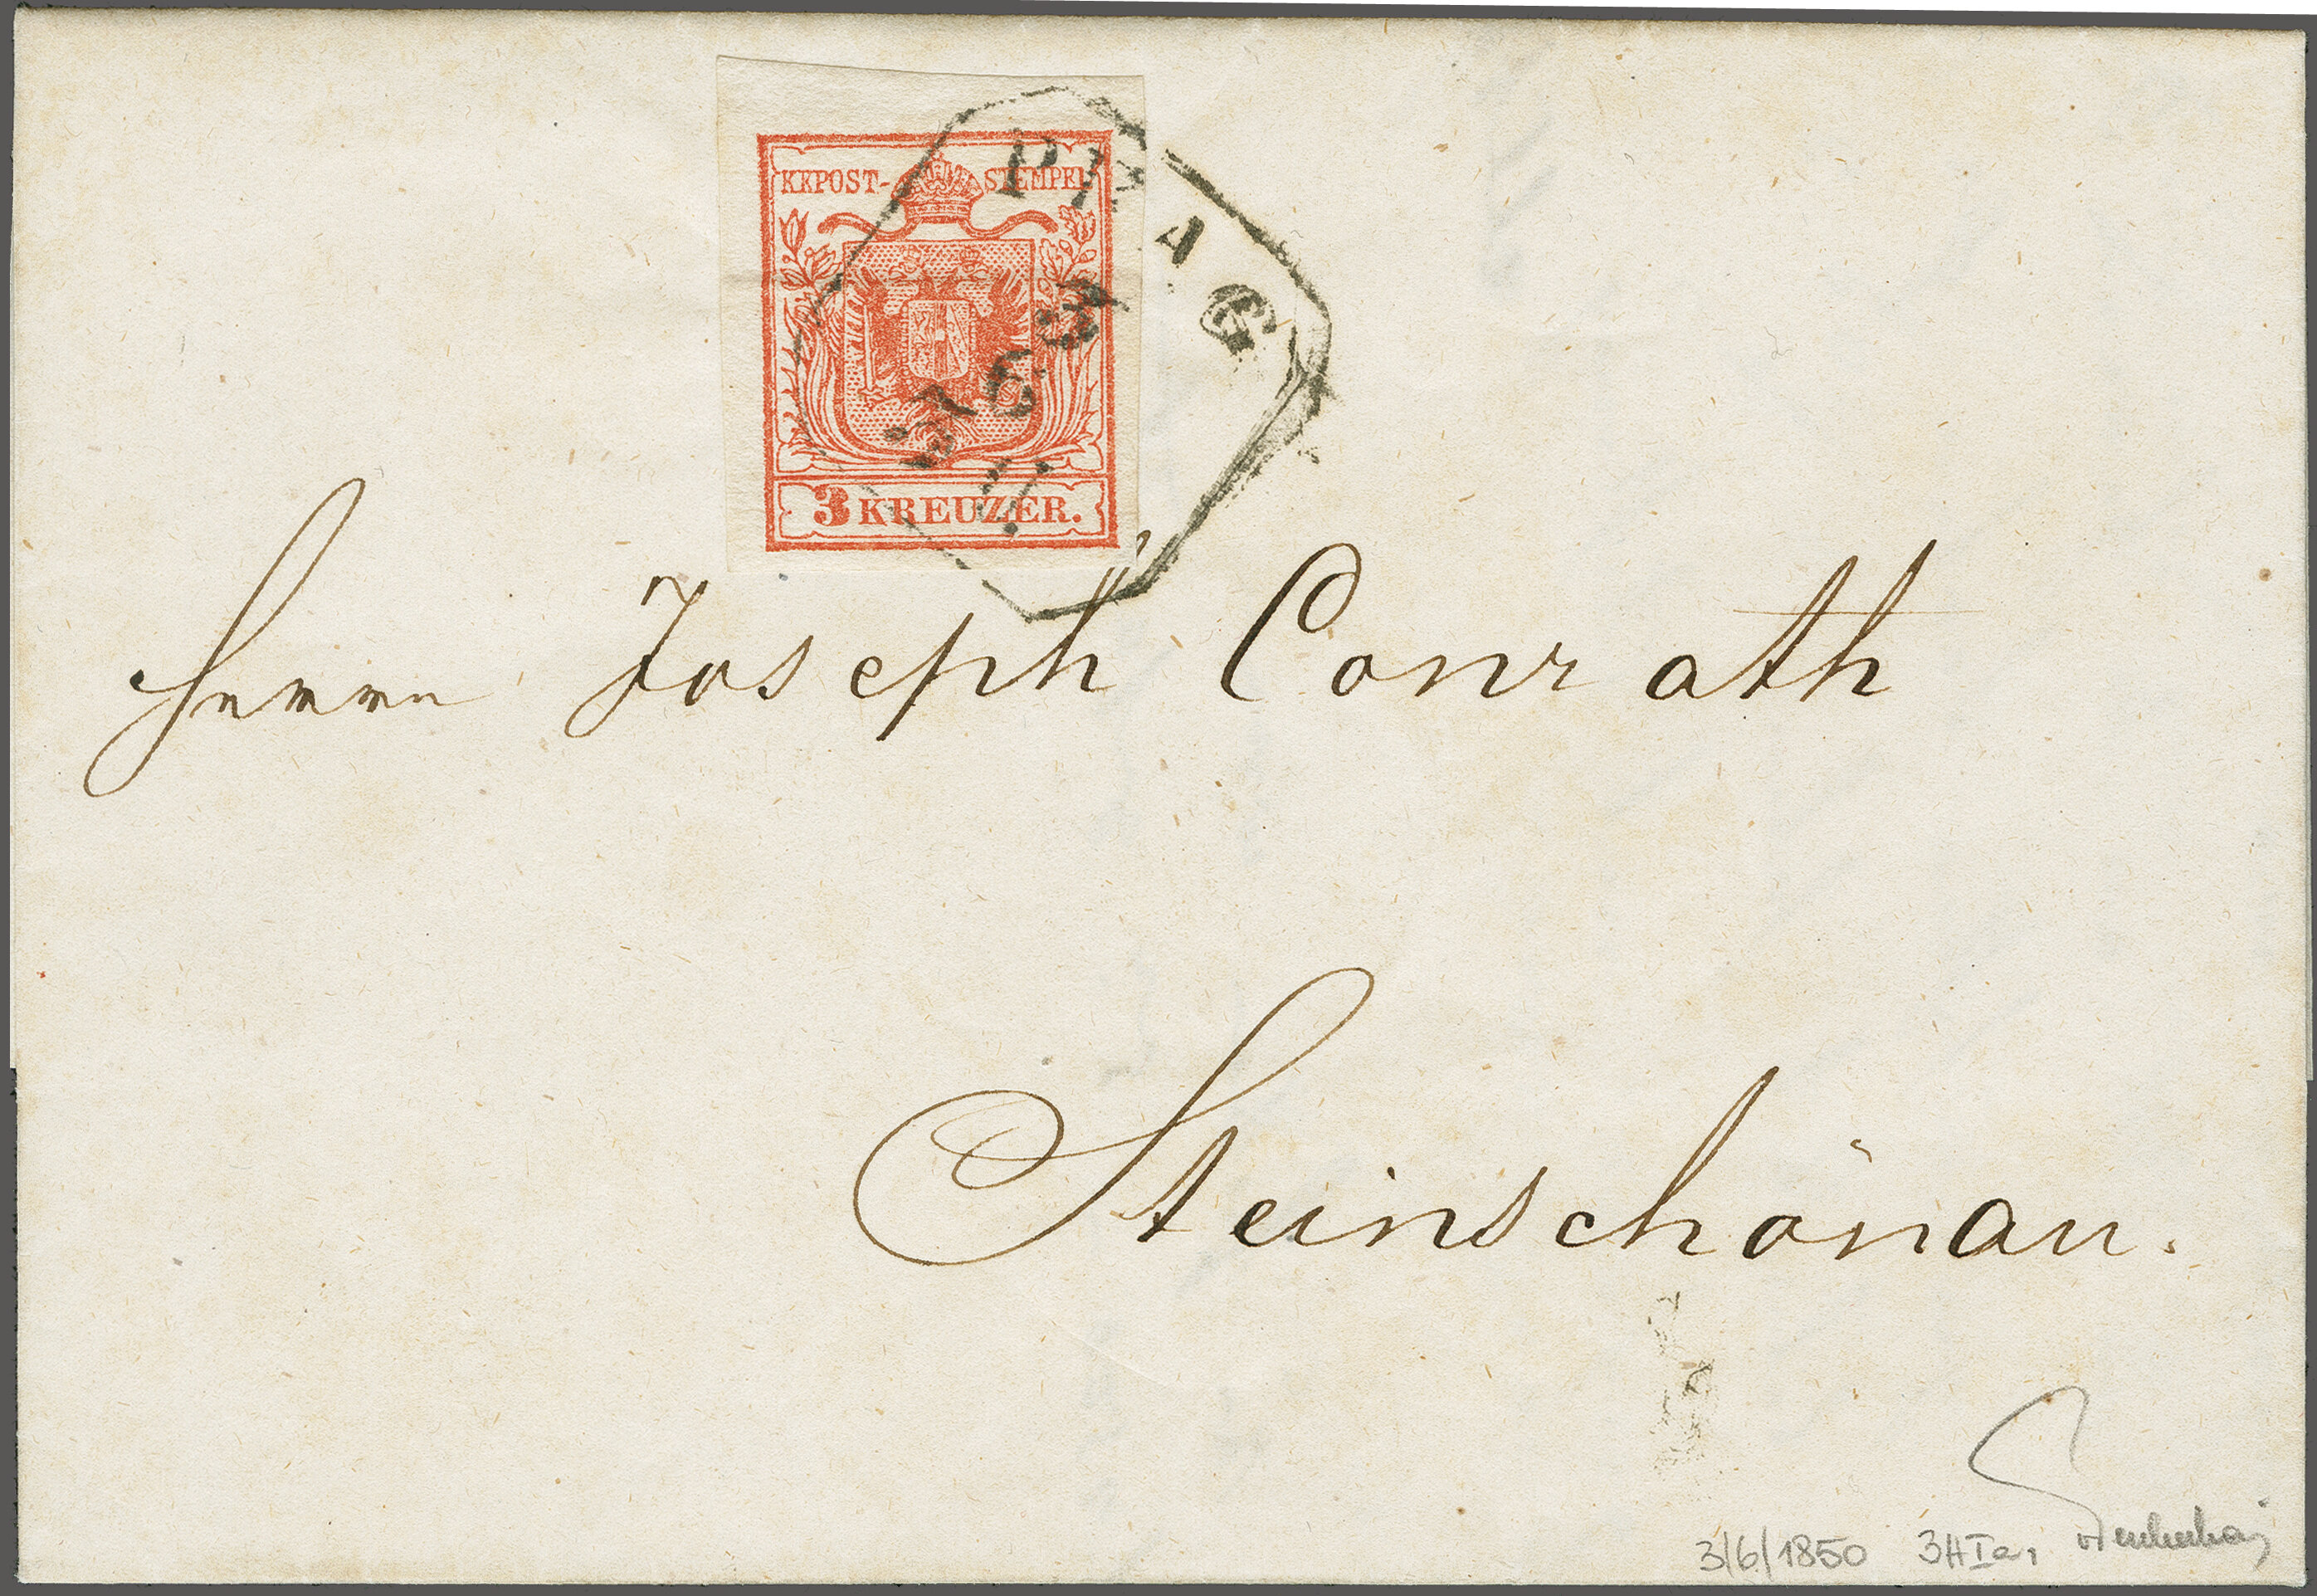 KKPOST-STEMPEL
3 KREUZER.
PRAG
Herrn Joseph Conrath
Steinschönau.
3/6/1850 3HIa,